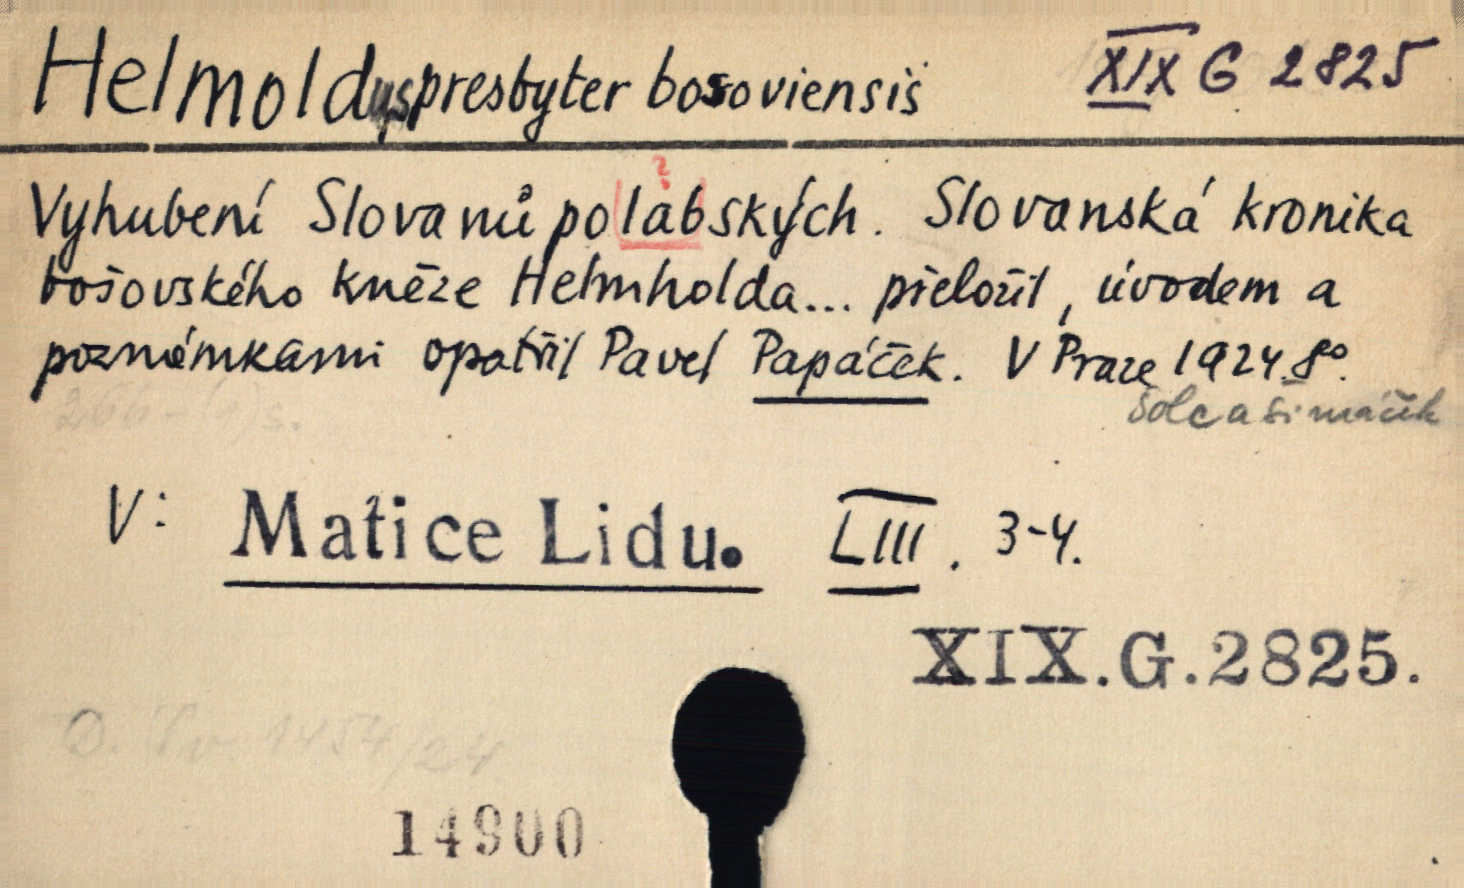 Helmoldus presbyter bosoviensis XIX G 2825
Vyhubení Slovanů polabských. Slovanská kronika
?
bošovského kněze Helmholda... přeložil, úvodem a
poznámkami opatřil Pavel Papáček. V Praze 1924. 8°.
Šolc a Šimáček
V: Matice Lidu. LIII. 3-4.
XIX.G.2825.
1454/24
14900